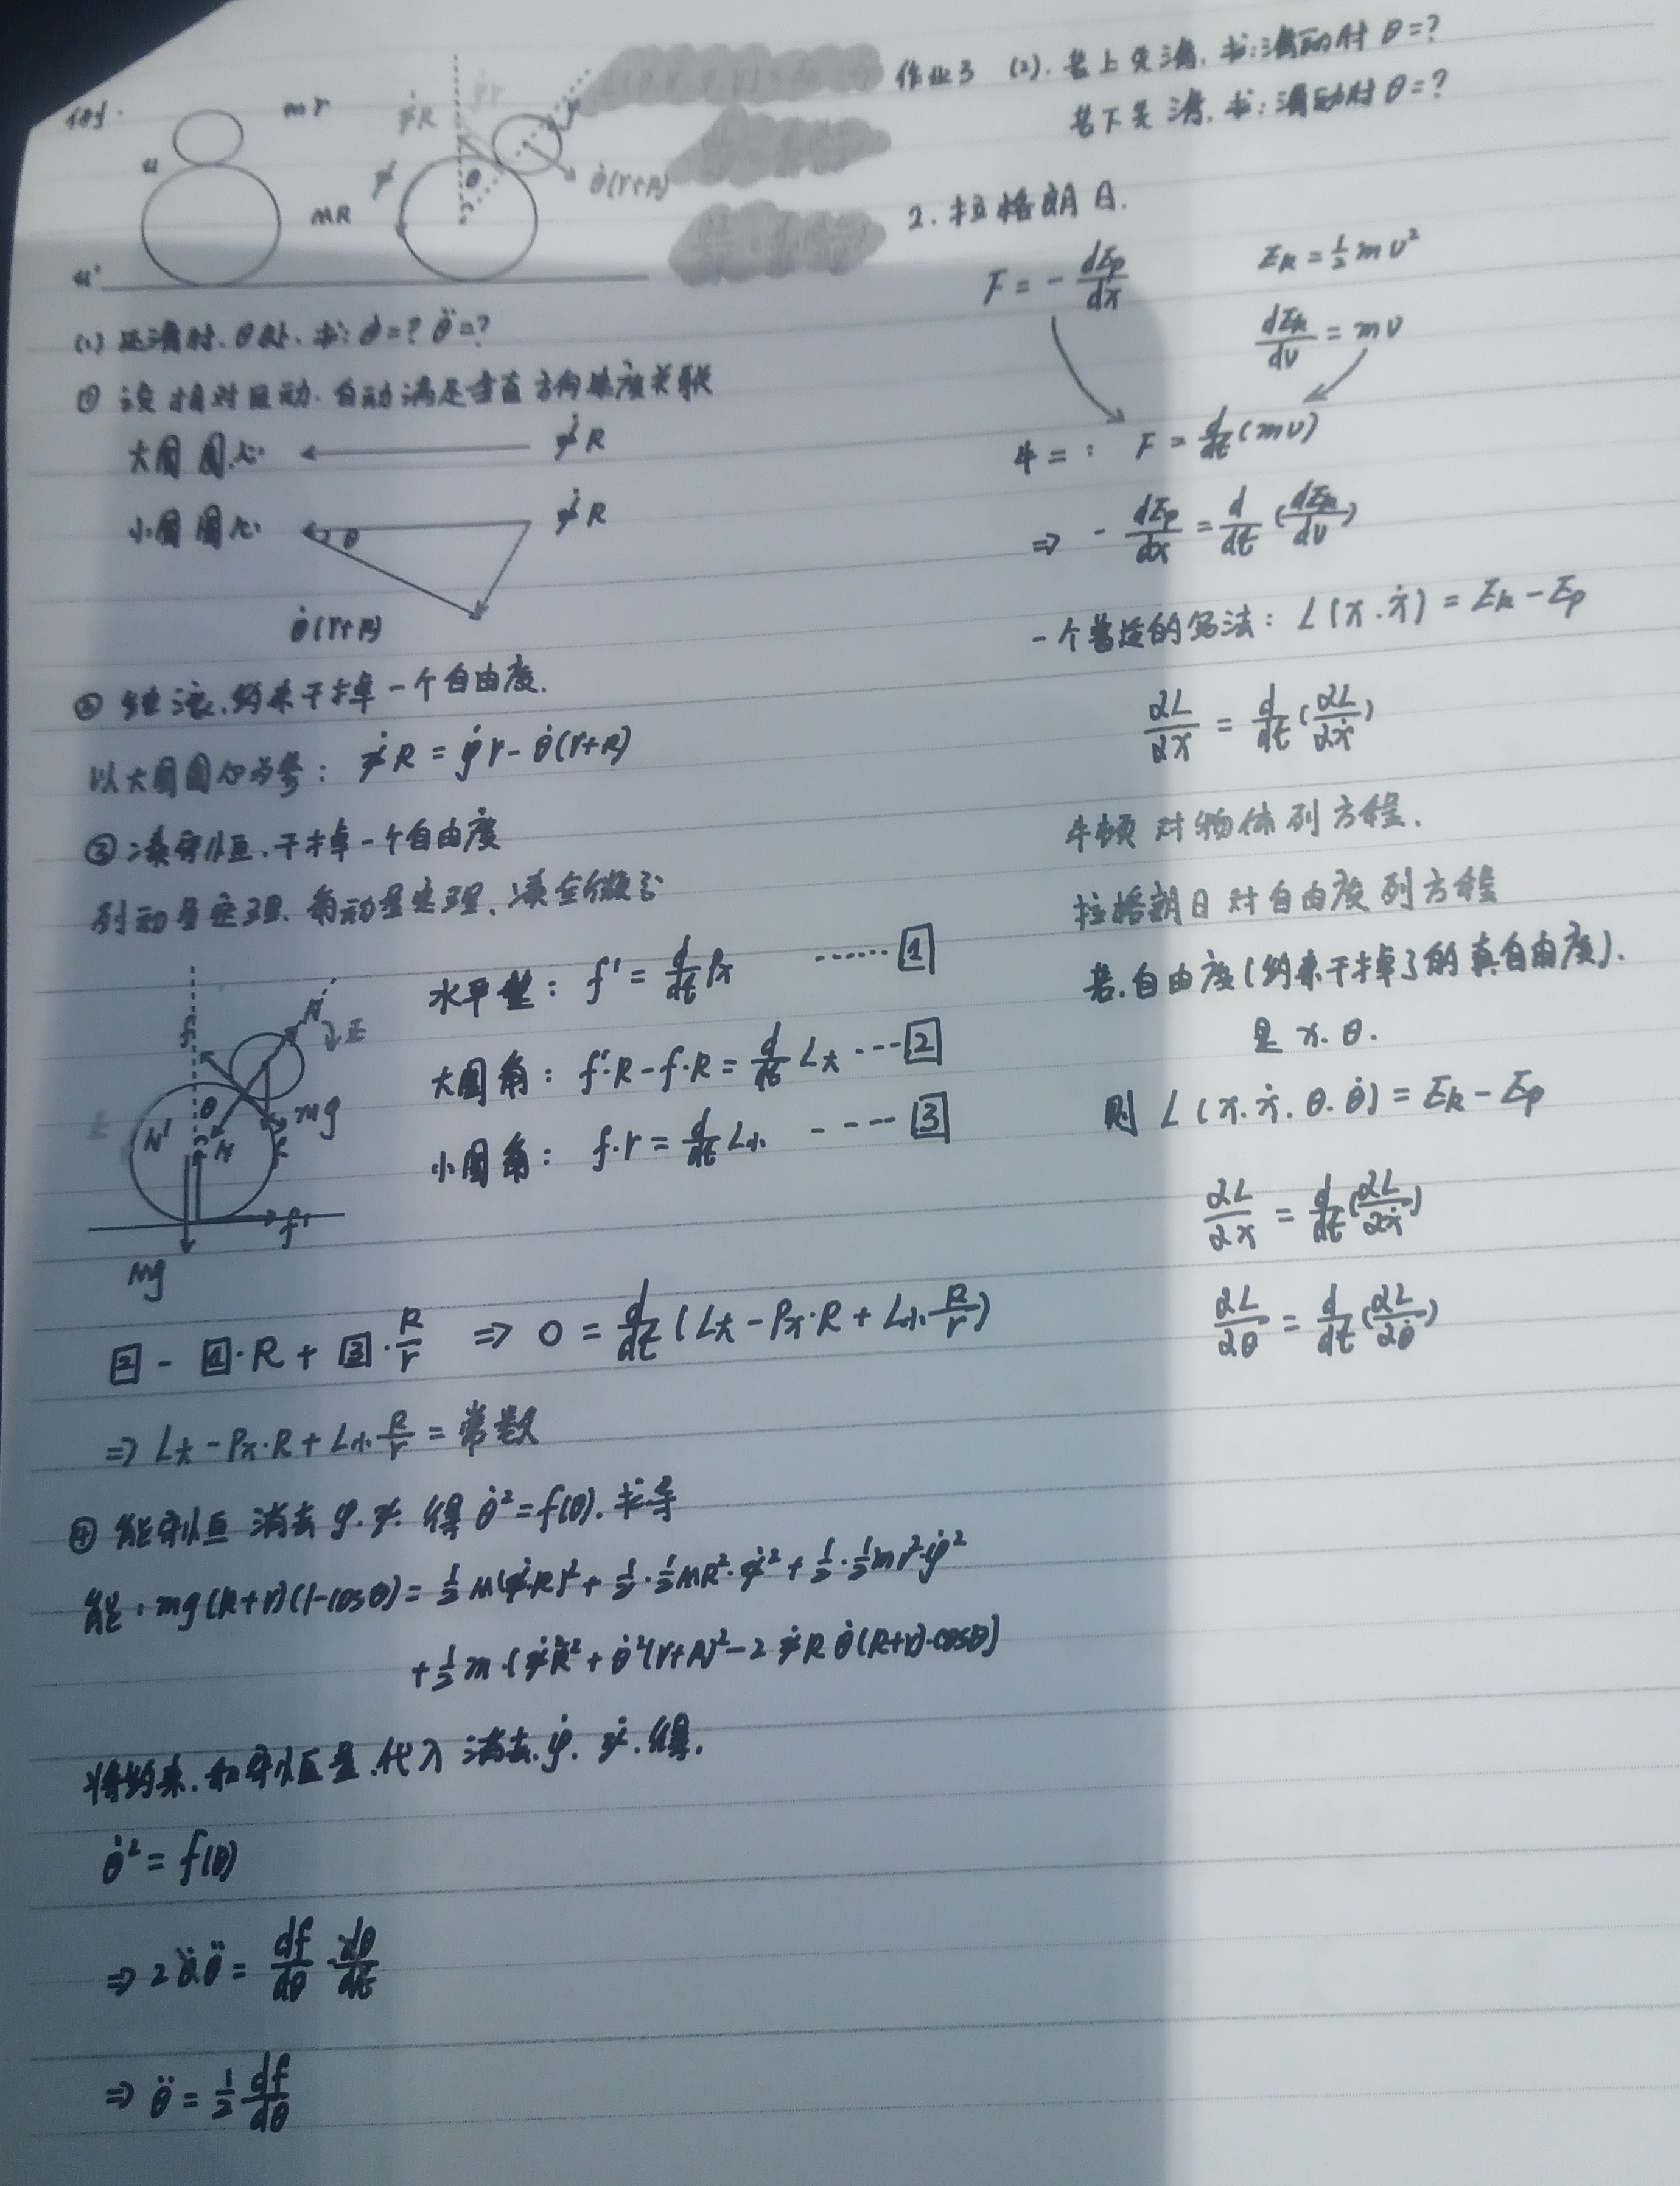 例.
m r
μ
M R
μ'
ψ̇R
ψ̇
θ
θ̇(r+R)
(1) 还滚时. θ时. 求: θ̇=? θ̈=?
① 设相对运动. 自动满足垂直方向速度关联
大圆圆心 ψ̇R
小圆圆心 ψ̇R
θ
θ̇(r+R)
② 纯滚. 约束干掉一个自由度.
以大圆圆心为参: ψ̇R = φ̇r - θ̇(r+R)
③ 凑守恒. 干掉一个自由度
列动量定理. 角动量定理. 凑全微分
水平整: f' = d/dt Px ······ [1]
大圆角: f'·R - f·R = d/dt L大 ··· [2]
小圆角: f·r = d/dt L小 ---- [3]
f
N
正
θ
mg
N'
N
f
f'
Mg
[2] - [1]·R + [3]·R/r ⇒ 0 = d/dt (L大 - Px·R + L小·R/r)
⇒ L大 - Px·R + L小·R/r = 常数
④ 能守恒 消去 φ. ψ. 得 θ̇² = f(θ). 求导
能: mg(R+r)(1-cosθ) = 1/2 M(ψ̇·R)² + 1/2·1/2MR²·ψ̇² + 1/2·1/2mr²·φ̇²
+ 1/2 m·[ψ̇²R² + θ̇²(r+R)² - 2ψ̇Rθ̇(R+r)·cosθ]
将约束. 和守恒量. 代入消去. φ̇. ψ̇. 得.
θ̇² = f(θ)
⇒ 2θ̇θ̈ = df/dθ · dθ/dt
⇒ θ̈ = 1/2 df/dθ
作业3 (2). 若上先滑. 求: 滑动时 θ=?
若下先滑. 求: 滑动时 θ=?
2. 拉格朗日.
F = - dEp/dx Ek = 1/2 mv²
dEk/dv = mv
牛二: F = d/dt (mv)
⇒ - dEp/dx = d/dt (dEk/dv)
一个普适的写法: L(x.ẋ) = Ek - Ep
∂L/∂x = d/dt (∂L/∂ẋ)
牛顿 对物体列方程.
拉格朗日对自由度列方程
若. 自由度(约束干掉了的真自由度).
是 x. θ.
则 L(x.ẋ.θ.θ̇) = Ek - Ep
∂L/∂x = d/dt (∂L/∂ẋ)
∂L/∂θ = d/dt (∂L/∂θ̇)